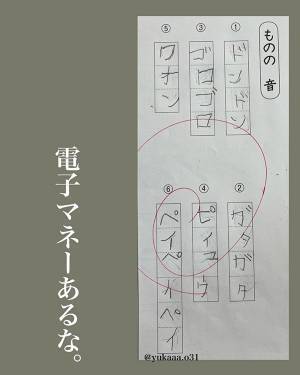 ものの 音
① ドンドン
② ガタガタ
③ ゴロゴロ
④ ピィュウ
⑤ ワオン
⑥ ペイペイペイ
電子マネーあるな。
@yukaaa.o31